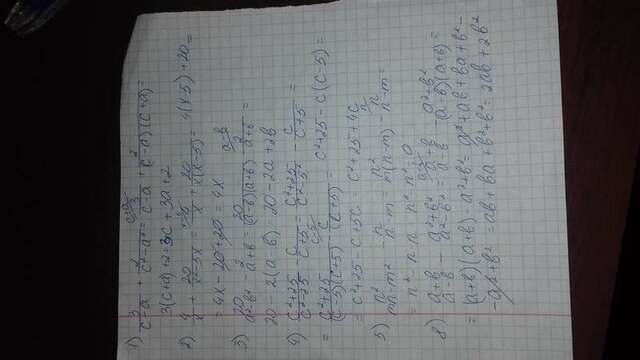 1) 3/(c-a) + 2/(c²-a²) = 3/(c-a) (c+a + 2/((c-a)(c+a)) =
3(c+a)+2=3c + 3a+2
2) 4/x + 20/(x²-5x) = 4/x + 20/(x(x-5)) = 4(x-5)+20 =
= 4x - 20+20 = 4x
3) 20/(a²-b²) - 2/(a+b) = 20/((a-b)(a+b)) - 2/(a+b) (a-b =
20 - 2(a-b) 20 - 2a + 2b
4) (c²+25)/(c²-25) - c/(c+5) = (c²+25)/(c²-5²) - c/(c+5) =
= (c²+25)/((c-5)(c+5)) - c/(c+5) (c-5 = c²+25 - c(c-5) =
= c²+25 - c+5c = c²+25+4c
5) n²/(mn-m²) - n/(n-m) = n²/(m(n-m)) - n/(n-m) (n =
= n² - n·n n² n² = 0
8) (a+b)/(a-b) - (a²+b²)/(a²-b²) = (a+b)/(a-b) (a+b - (a²+b²)/((a-b)(a+b)) =
= (a+b)(a+b) - a²+b² = a²+ab+ba+b² -
- a²+b² = ab+ba+b²+b² = 2ab+2b²